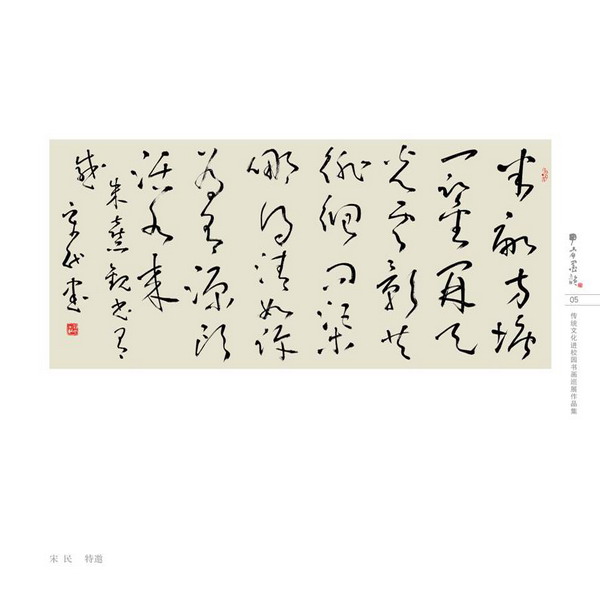 半亩方塘
一鉴开天
光云影共
徘徊问渠
那得清如许
为有源头
活水来
朱熹观书有
感 宋民书
05
传统文化进校园书画巡展作品集
宋民 特邀